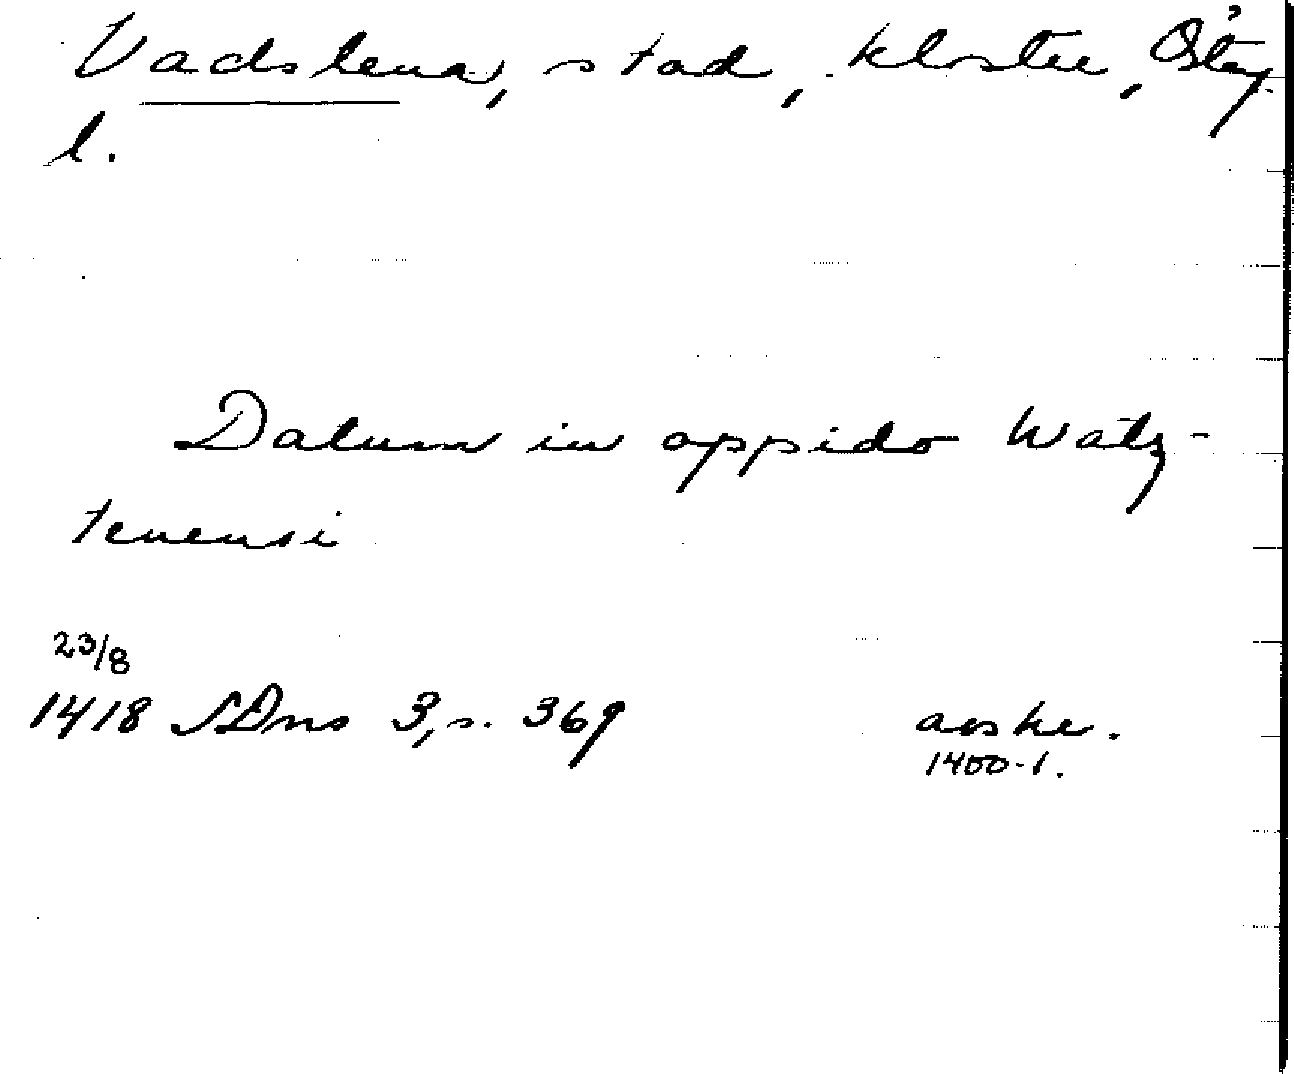 Vadstena, stad, kloster, Östg.
l.
Datum in oppido Watz-
tenensi
23/8
1418 SDns 3, s. 369 avskr.
1400-t.